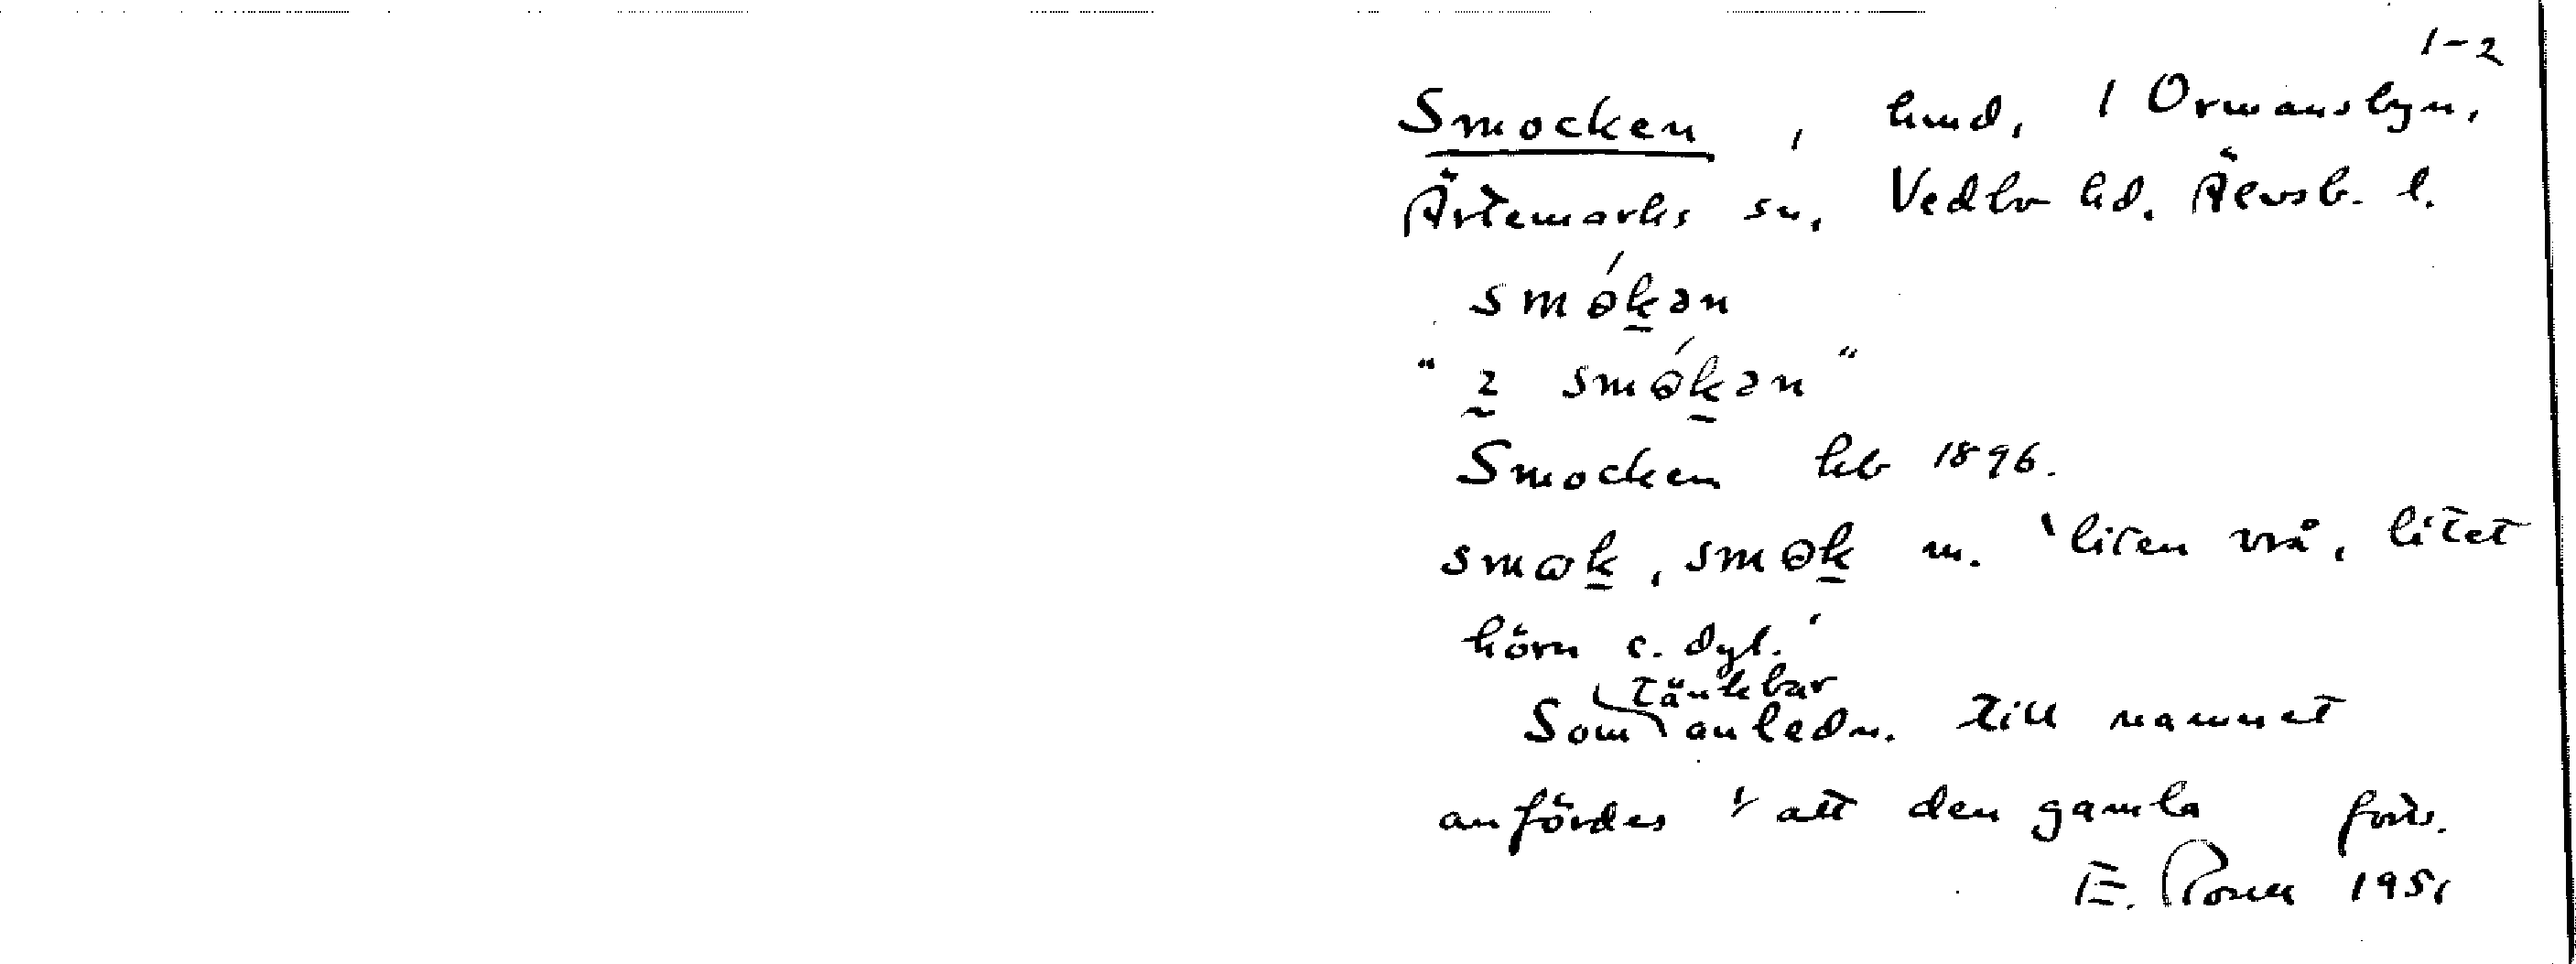 1-2
Smocken, hmd, 1 Ormansbyn,
Ärtemarks sn, Vedbo hd. Älvsb. l.
smɵ́kən
" ɪ smɵ́kən "
Smocken kb 1896.
smɷk, smɵk m. 'liten vrå, litet
hörn e. dyl.'
tänkbar
Som anledn. till namnet
anfördes att den gamla forts.
E. 1951